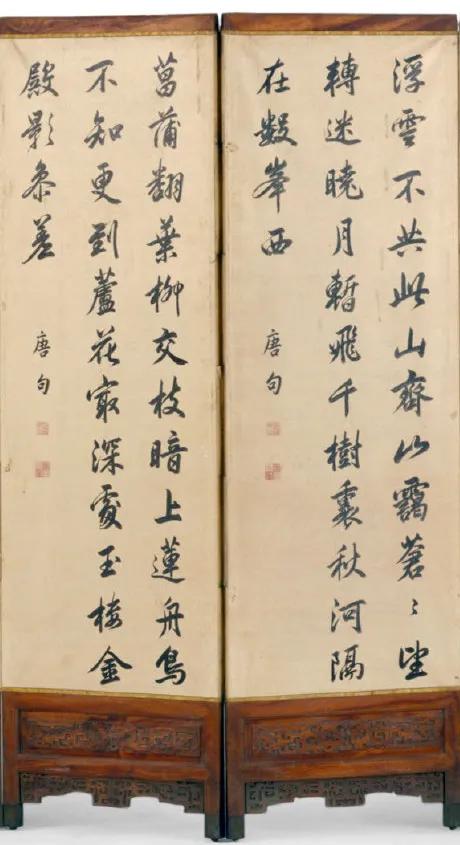 浮雲不共此山齊山靄蒼〻望
轉迷曉月暫飛千樹裏秋河隔
在數峯西
唐句
菖蒲翻葉柳交枝暗上蓮舟鳥
不知更到蘆花㝡深處玉樓金
殿影參差
唐句